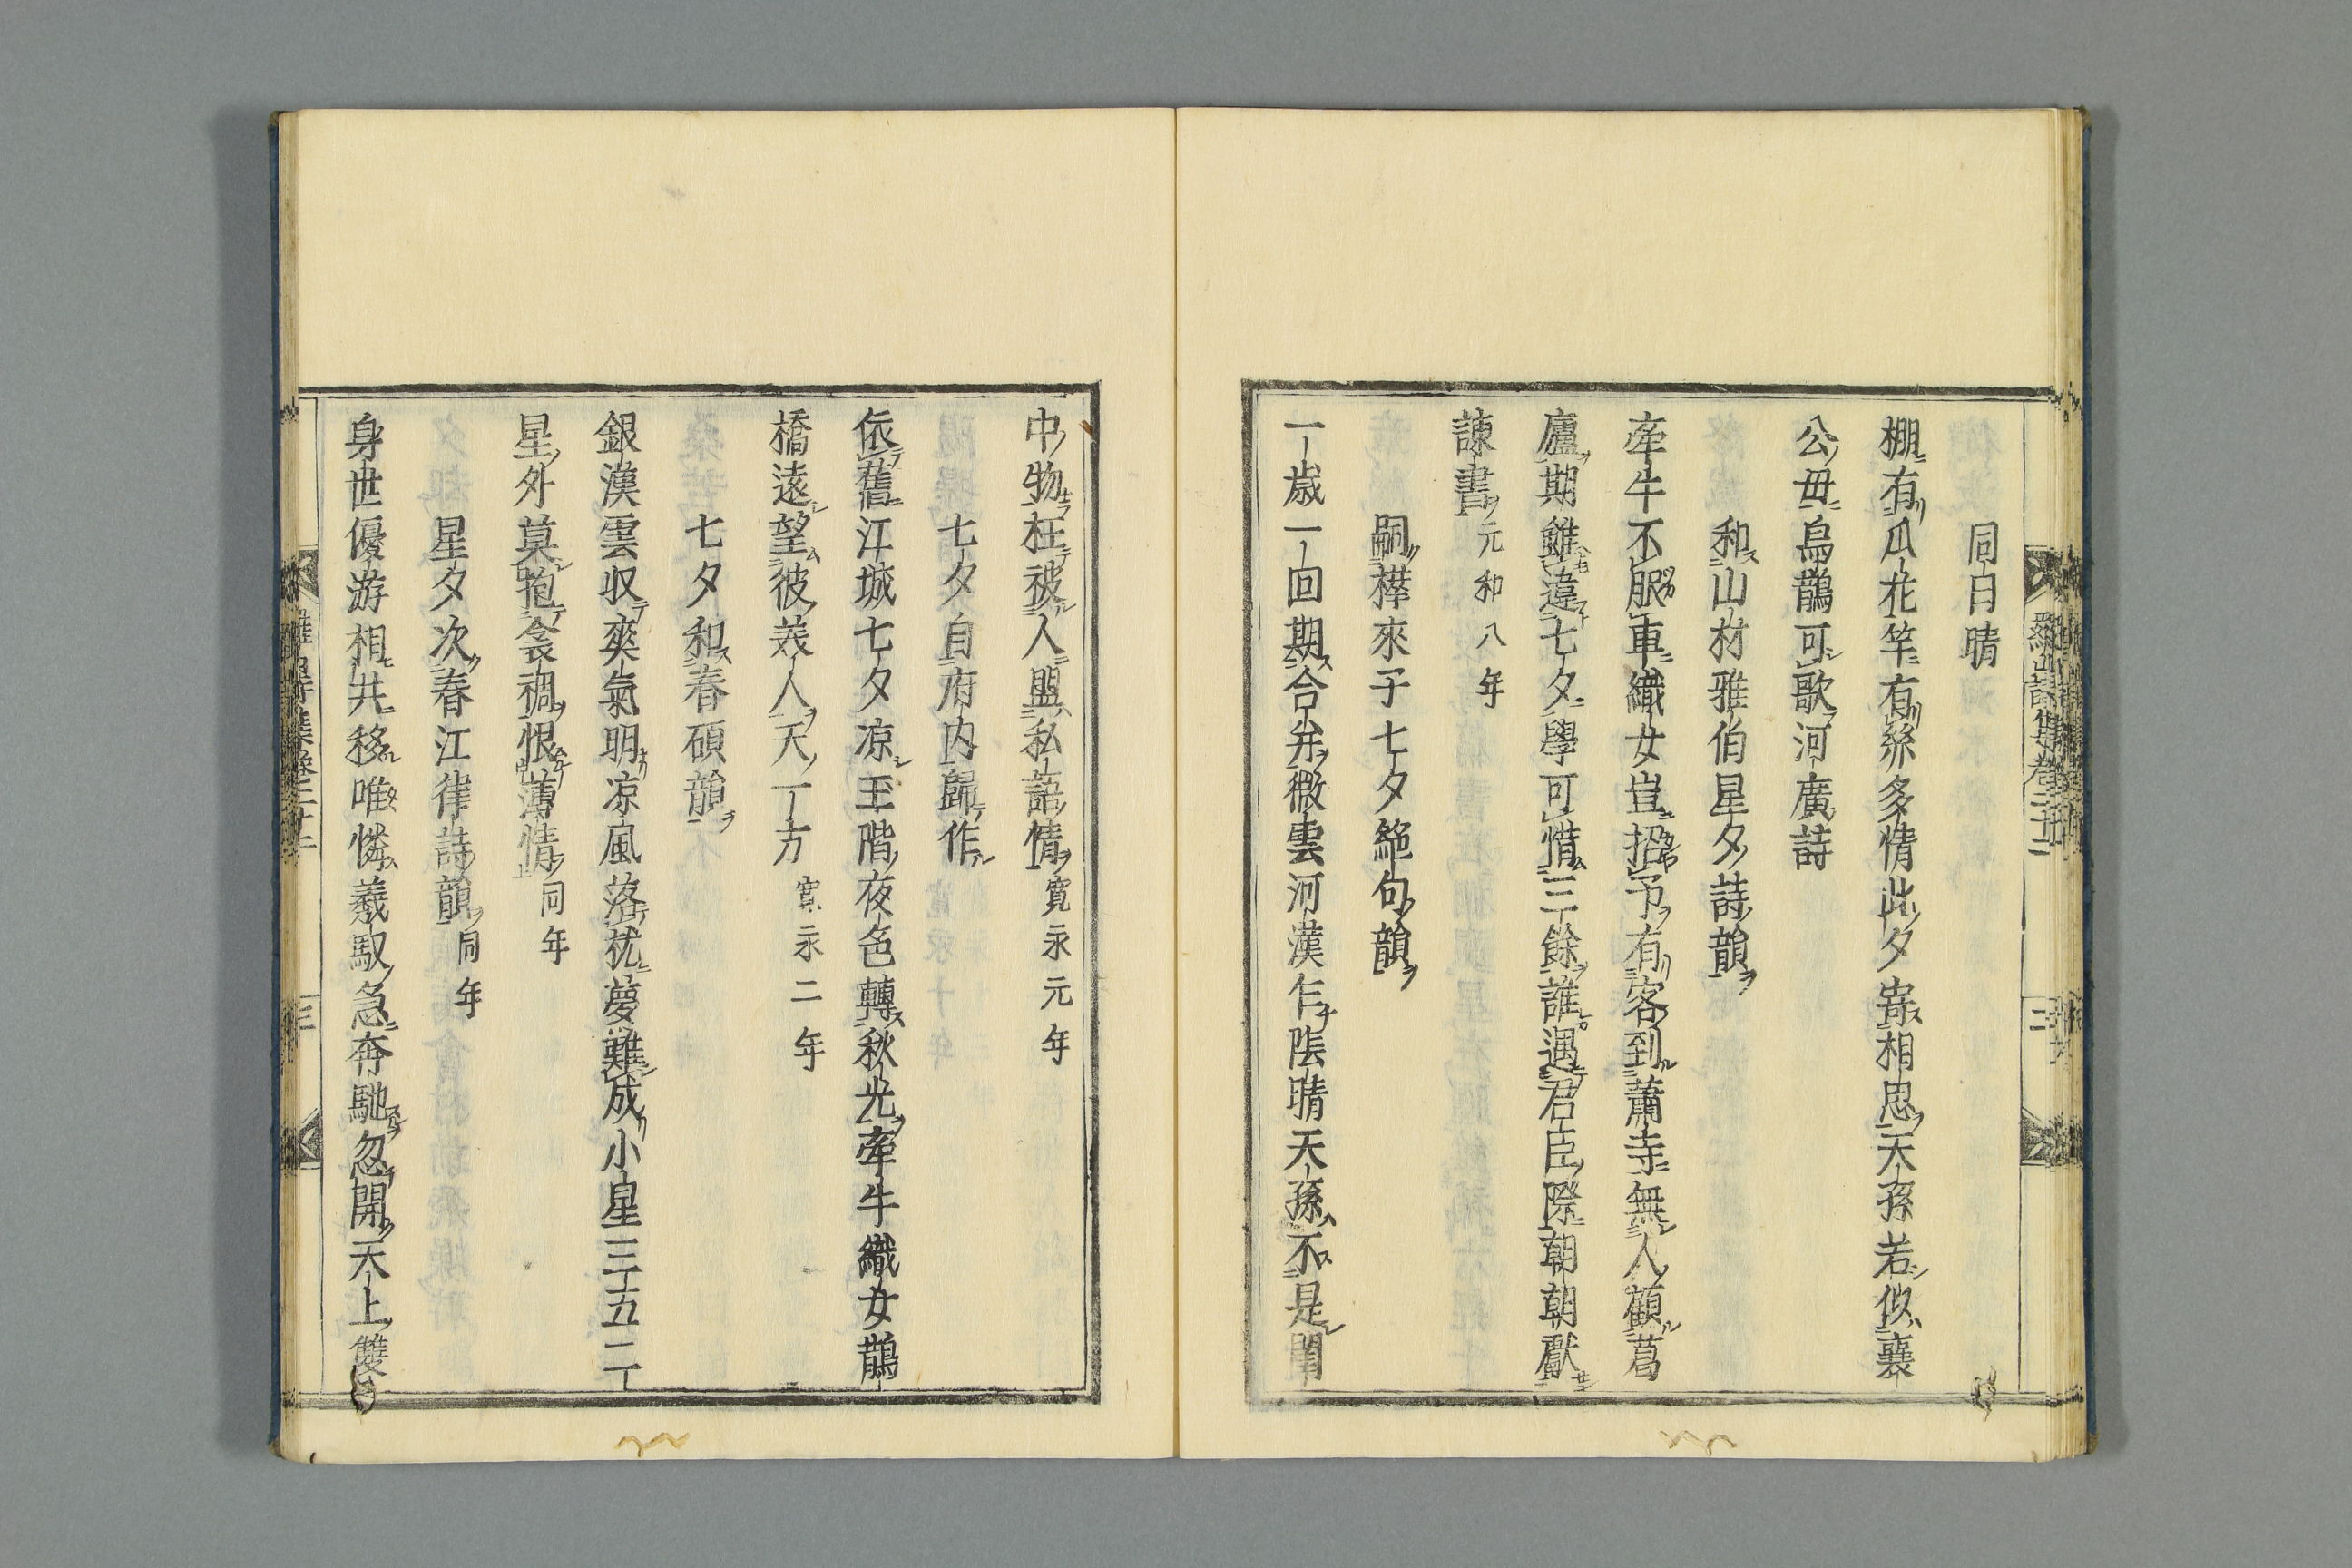 同日晴
棚有瓜花竿有絲多情此夕寄相思天孫若似襄
公毋烏鵲可歌河廣詩
和山材雅伯星夕詩韻
牽牛不服車織女豈招予有客到蕭寺無人顧葛
廬期雖違七夕學可惜三餘誰遇君臣際朝朝獻
諫書元和八年
嗣樸來子七夕絶句韻
一歲一回期合并微雲河漢乍陰晴天孫不是閨
中物枉被人盟私語情寛永元年
七夕自府内歸作
依舊江城七夕凉玉階夜色轉秋光牽牛織女鵲
橋遠望彼美人天一方寛永二年
七夕和春碩韻
銀漢雲収爽氣明凉風落枕夢難成小星三五二
星外莫抱衾裯恨薄情同年
星夕次春江律詩韻同年
身世優游相共移唯憐羲馭急奔馳忽開天上雙